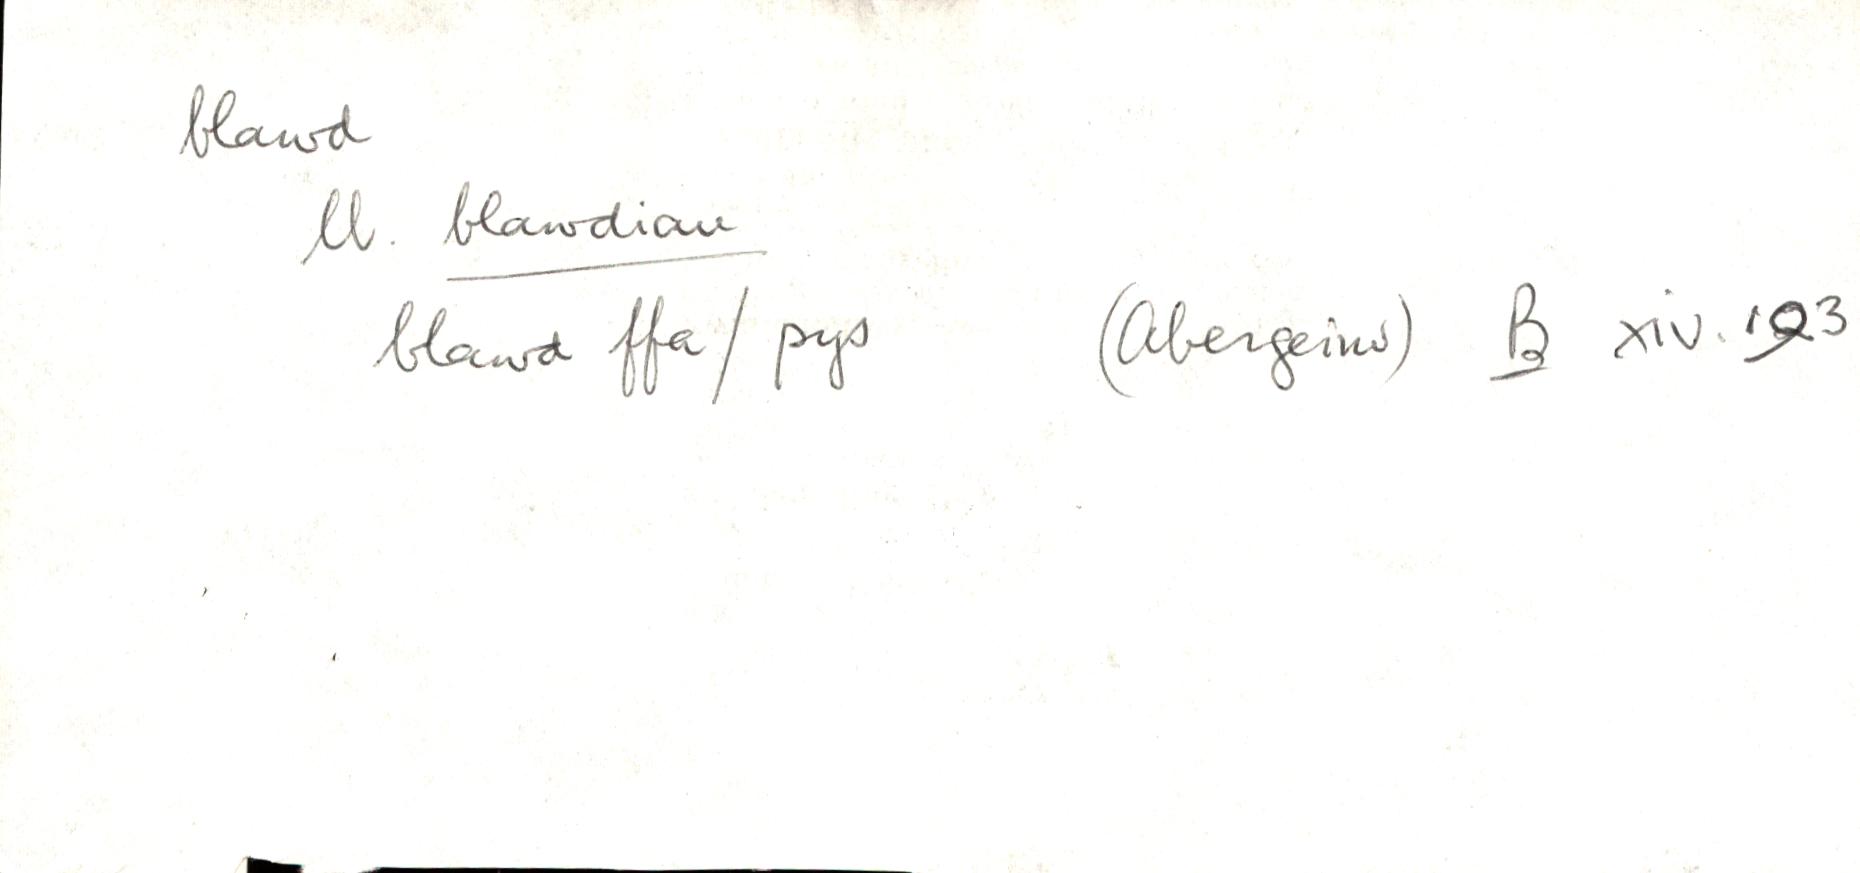 blawd
ll. blawdiau
blawd ffa / pys (Abergeinw) B xiv. 193